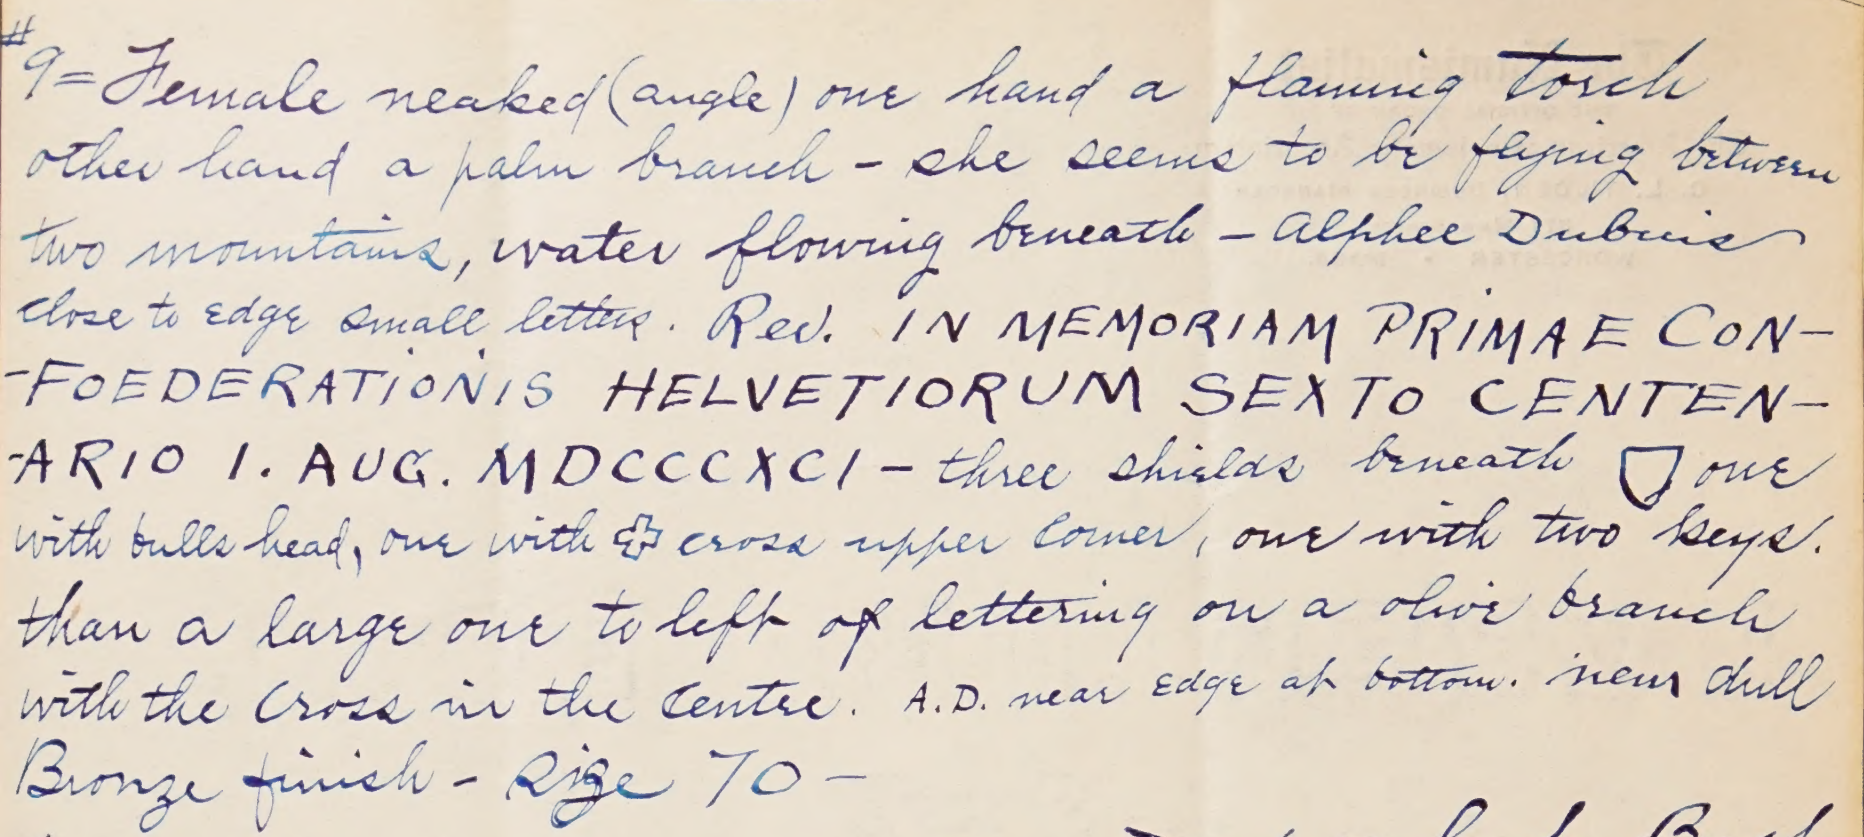 #9= Female neaked (angle) one hand a flaming torch
other hand a palm branch - she seems to be flying between
two mountains, water flowing beneath - Alphee Dubuis
close to edge small letters. Rev. IN MEMORIAM PRIMAE CON-
-FOEDERATIONIS HELVETIORUM SEXTO CENTEN-
-ARIO 1. AUG. MDCCCXCI - three shields beneath one
with bulls head, one with cross upper corner, one with two keys.
than a large one to left of lettering on a olive branch
with the cross in the centre. A.D. near edge at bottom. new dull
Bronze finish - Size 70 -